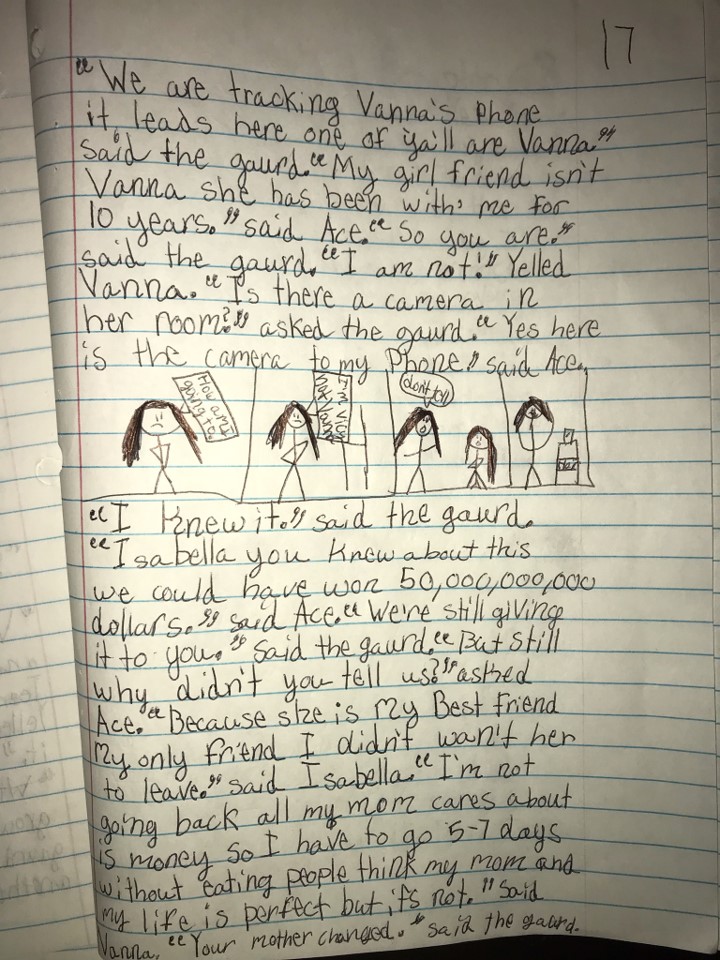 17
“We are tracking Vanna's Phone
it leads here one of ya'll are Vanna”
said the gaurd.“My girl friend isn't
Vanna she has been with me for
10 years.” said Ace.“So you are.”
said the gaurd.“I am not!” Yelled
Vanna.“Is there a camera in
her room?” asked the gaurd.“Yes here
is the camera to my Phone.” said Ace.
How am I
going to
don't tell
“I Knew it.” said the gaurd.
“Isabella you Knew about this
we could have won 50,000,000,000
dollars.” said Ace.“We're still giving
it to you.” said the gaurd.“But still
why didn't you tell us?” asked
Ace.“Because she is My Best friend
My only friend I didn't wan't her
to leave.” said Isabella.“I'm not
going back all my mom cares about
is money so I have to go 5-7 days
without eating people think my mom and
my life is perfect but it's not.” said
Vanna.“Your mother changed.” said the gaurd.